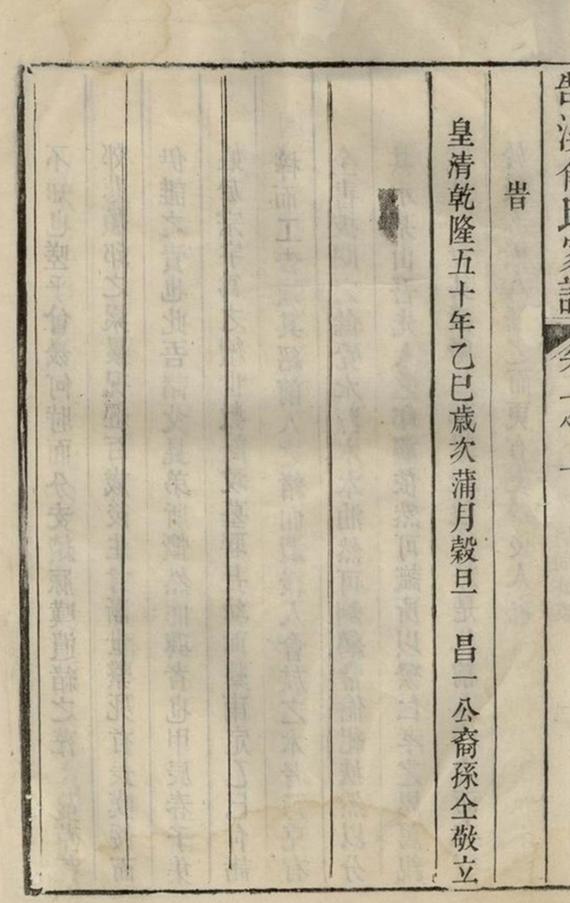 家譜
旹
皇清乾隆五十年乙巳歲次蒲月穀旦 昌一公裔孫仝敬立